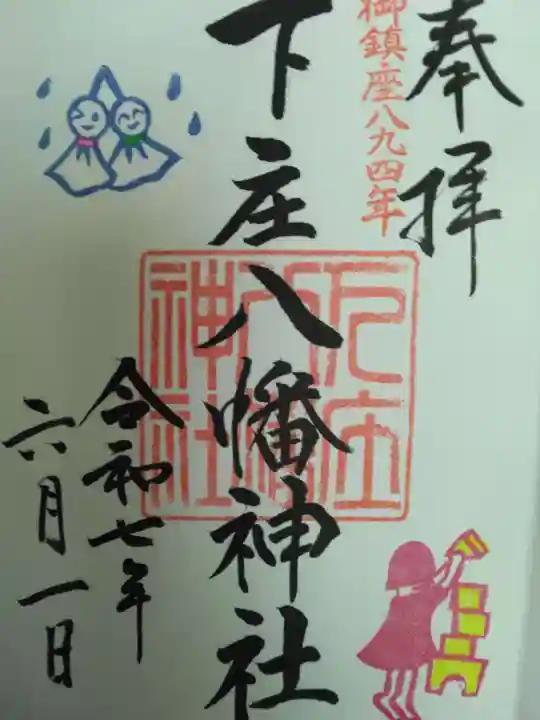 奉拝
御鎮座八九四年
下庄八幡神社
下庄八幡神社
令和七年
六月一日